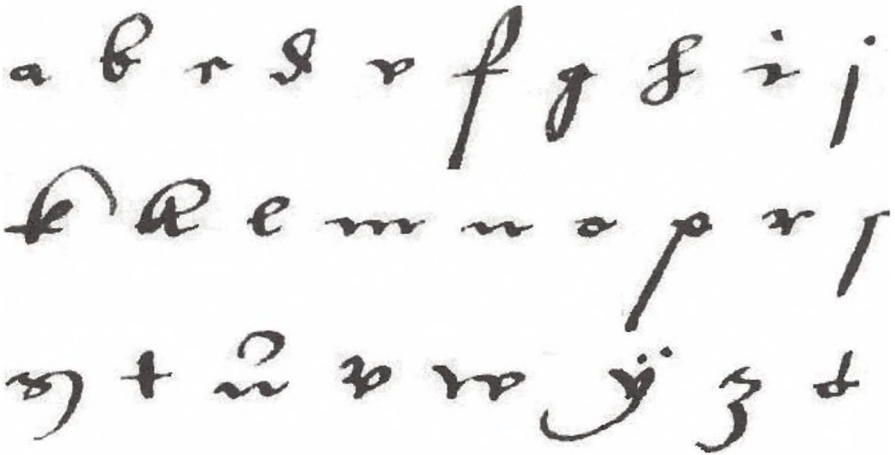 a b c d e f g h i j
k k l m n o p r ſ
s t u v w ÿ z